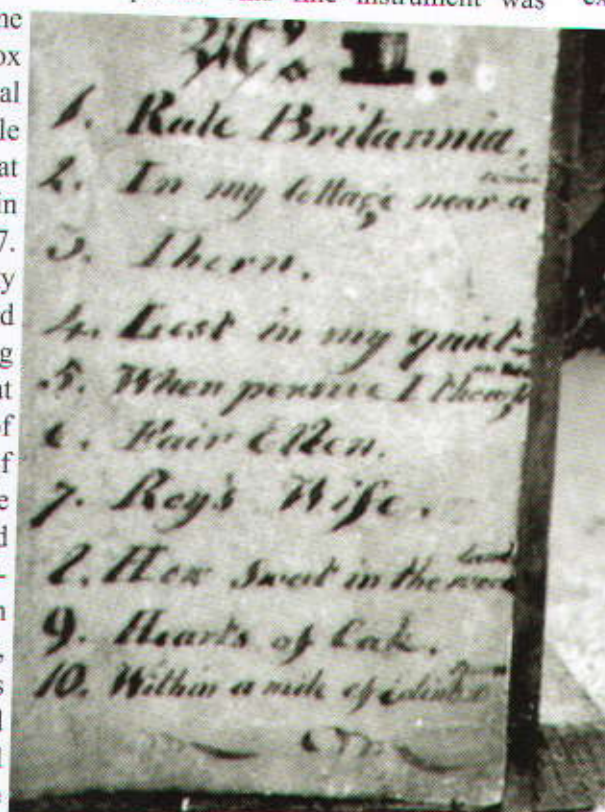 instrument was ex
ne
ox
al
le
at
in
7.
y
d
g
at
of
f
e
d
-
n
,
s
d
l
e
No. II.
1. Rule Britannia.
2. In my Cottage near a
wood
3. Thorn.
4. Lost in my quiet
5. When pensive I thought
6. Fair Ellen.
7. Roy's Wife.
8. How Sweet in the wood
9. Hearts of Oak.
10. Within a mile of